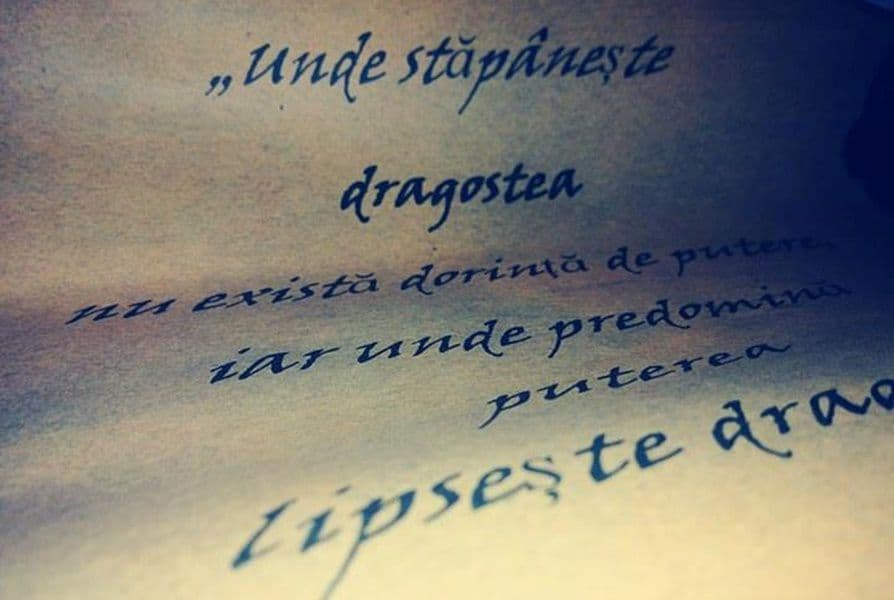 „Unde stăpânește
dragostea
nu există dorință de putere,
iar unde predomină
puterea
lipsește drago